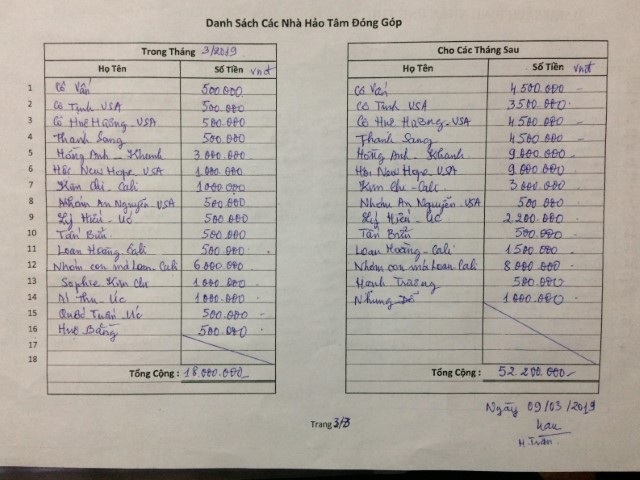 Danh Sách Các Nhà Hảo Tâm Đóng Góp
Trong Tháng 3/2019
Họ Tên Số Tiền vnđ
1 Cô Vấn 500.000
2 Cô Tịnh USA 500.000
3 Cô Huệ Hường - USA 500.000
4 Thanh Sang 500.000
5 Hồng Anh - Khanh 3.000.000
6 Hội New Hope USA 1.000.000
7 Kim Chi - Cali 1.000.000
8 Nhóm An Nguyễn - USA 500.000
9 Lý Hiếu - Úc 500.000
10 Tấn Bửu 500.000
11 Loan Hoàng Cali 500.000
12 Nhóm con má Loan - Cali 6.000.000
13 Sophie Kim Chi 1.000.000
14 Ni Thu - Úc 1.000.000
15 Quốc Tuấn - Úc 500.000
16 Huệ Bằng 500.000
17
18
Tổng Cộng : 18.000.000
Cho Các Tháng Sau
Họ Tên Số Tiền vnđ
Cô Vấn 4.500.000
Cô Tịnh USA 3.500.000
Cô Huệ Hường - USA 4.500.000
Thanh Sang 4.500.000
Hồng Anh - Khanh 9.000.000
Hội New Hope USA 9.000.000
Kim Chi - Cali 3.000.000
Nhóm An Nguyễn - USA 500.000
Lý Hiếu - Úc 2.200.000
Tấn Bửu 500.000
Loan Hoàng - Cali 1.500.000
Nhóm con má Loan Cali 8.000.000
Hạnh Trương 500.000
Nhung Đỗ 1.000.000
Tổng Cộng : 52.200.000
Ngày 09/03/2019
Trang 3/3
H. Trân